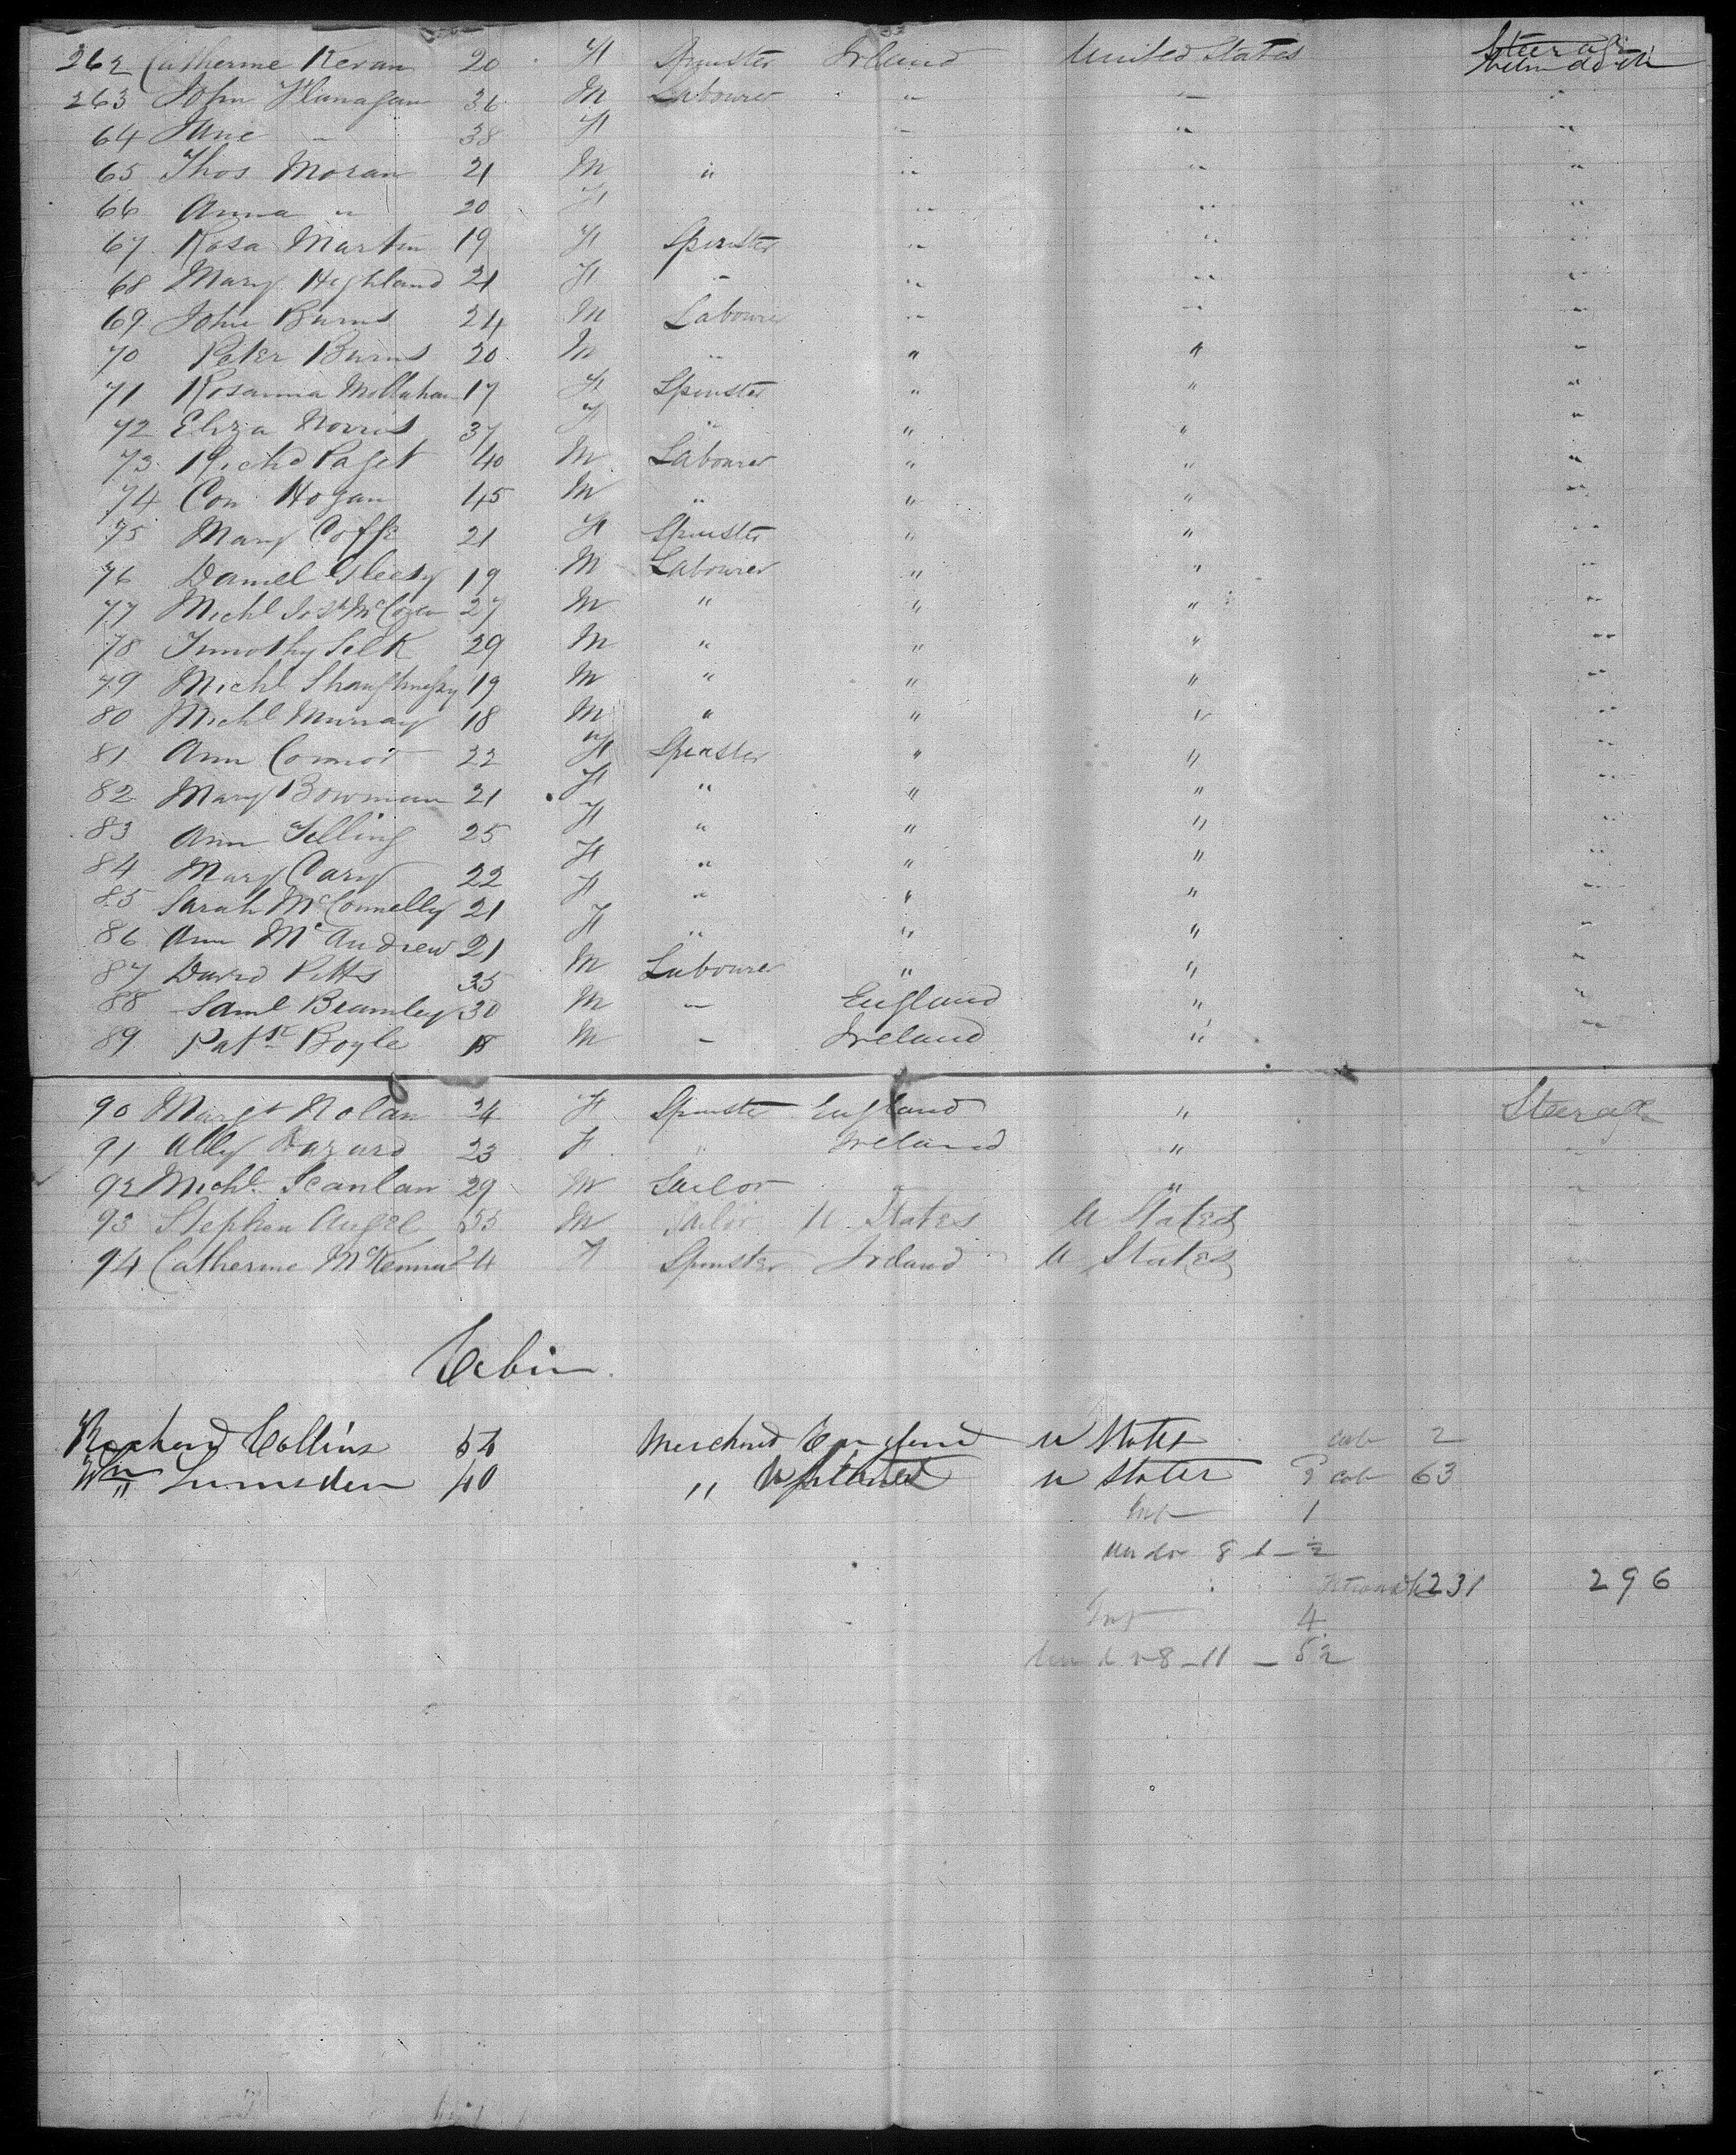 262 Catherine Keran 20 F Spinster Ireland United States Steerage
263 John Flanagan 36 M Labourer " " "
64 Jane " 38 F " " "
65 Thos Moran 21 M " " " "
66 Anna " 20 F " " "
67 Rosa Martin 19 F Spinster " " "
68 Mary Highland 21 F " " " "
69 John Burns 24 M Labourer " " "
70 Peter Burns 20 M " " " "
71 Rosanna 17 F Spinster " " "
72 Eliza Norris 37 F " " " "
73 Richd Paget 40 M Labourer " " "
74 Con Hogan 45 M " " " "
75 Mary Coffe 21 F Spinster " " "
76 Daniel 19 M Labourer " " "
77 Michl 27 M " " " "
78 Timothy Silk 29 M " " " "
79 Michl Shaughnessy 19 M " " " "
80 Michl Murray 18 M " " " "
81 Ann Connor 22 F Spinster " " "
82 Mary Bowman 21 F " " " "
83 Ann 25 F " " " "
84 Mary Cary 22 F " " " "
85 Sarah McConnelly 21 F " " " "
86 Ann McAndrew 21 F " " " "
87 David Pitts 35 M Labourer " " "
88 Saml Beamley 30 M " England " "
89 Patk Boyle M " Ireland " "
90 Margt Nolan 24 F Spinster England " Steerage
91 Ally 23 F " Ireland " "
92 Michl Scanlan 29 M Sailor " " "
93 Stephen Angel 55 M Sailor U States U States "
94 Catherine McKenna 24 F Spinster Ireland U States "
Cabin
Richard Collins Merchant England U States cab 2
Wm Lumsden 40 " U States 2 cab 63
Inf 1
under 8 1 - ½
231 296
Inf 4
under 8 - 11 - 5½